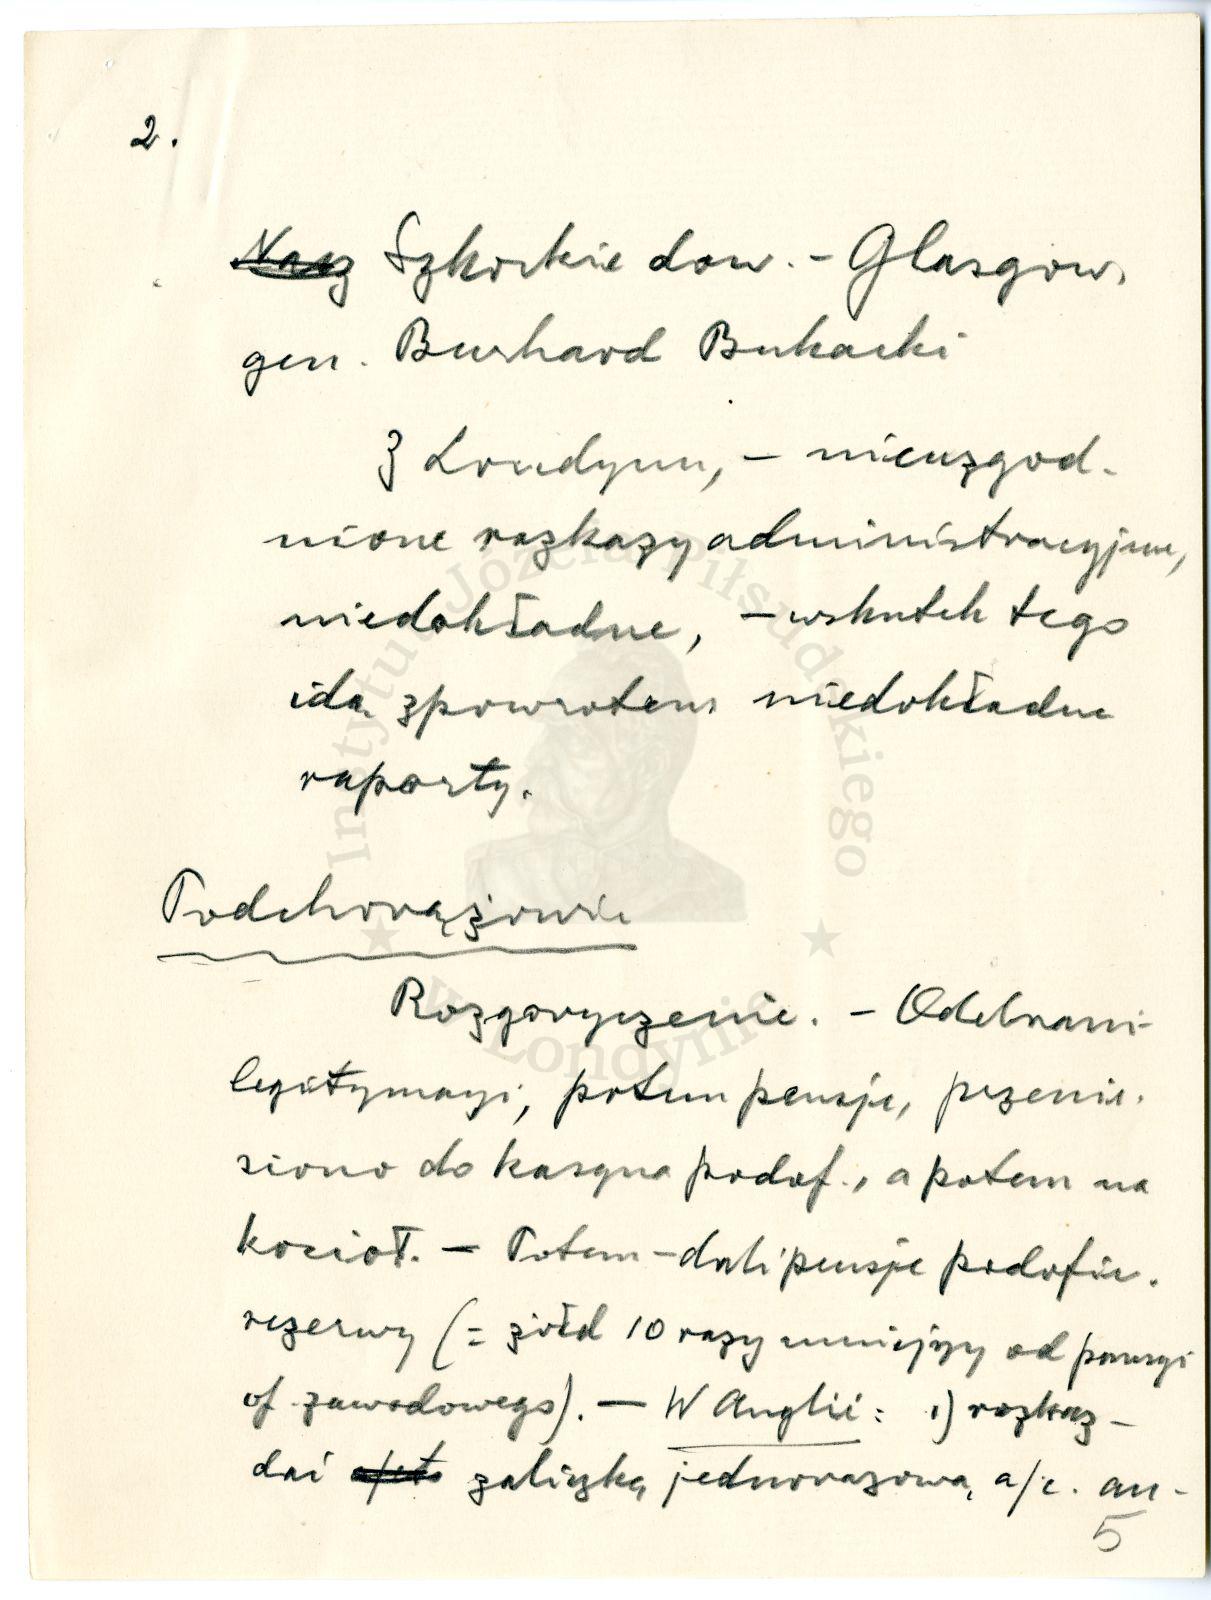 2.
Szkockie dow. - Glasgow,
gen. Burhard Bukacki
Z Londynu, - nieuzgod-
nione rozkazy administracyjne,
niedokładne, - wskutek tego
idą zpowrotem niedokładne
raporty.
Podchorążowie
Rozgoryczenie. - Odebrani-
legitymacyj, potem pensje, przenie-
siono do kasyna podof., a potem na
kocioł. - Potem - dali pensje podofic.
rezerwy (= żołd 10 razy mniejszy od pensyi
of. zawodowego). - W Anglii: 1) rozkaz -
dać zaliczkę jednorazową, a/c. an-
5
Instytut Józefa Piłsudskiego
w Londynie